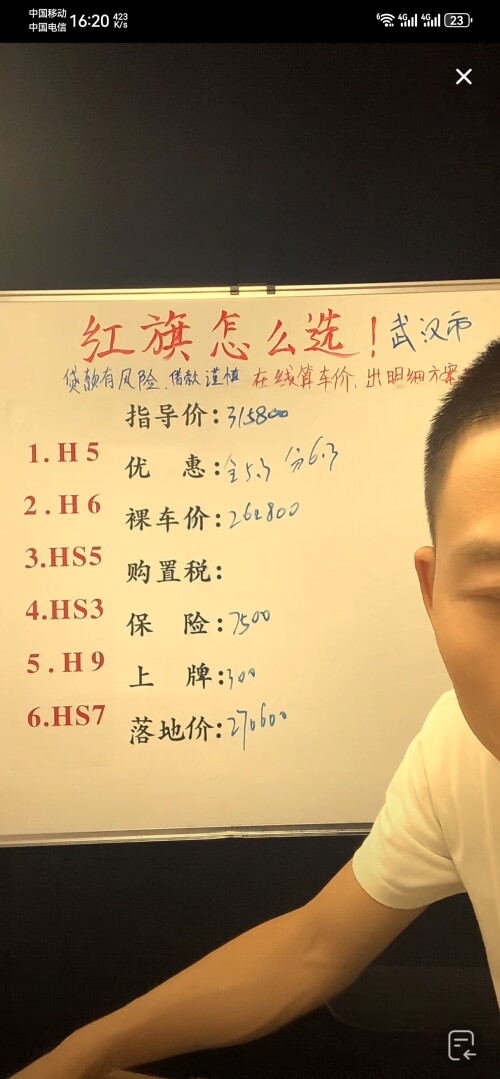 中国移动
中国电信
16:20
423
K/s
6
4G
4G
23
红旗怎么选！武汉市
贷款有风险.借款谨慎 在线算车价.出明细方案
指导价:315800
1.H5
优 惠:全5.3 分6.3
2.H6
裸车价:262800
3.HS5
购置税:
4.HS3
保 险:7500
5.H9
上 牌:300
6.HS7
落地价:270600